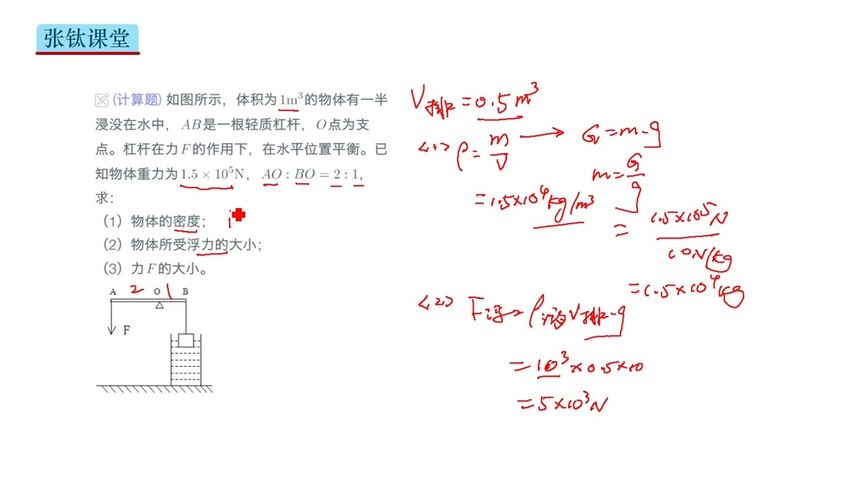 张钛课堂
(计算题) 如图所示，体积为1m³的物体有一半
浸没在水中，AB是一根轻质杠杆，O点为支
点。杠杆在力F的作用下，在水平位置平衡。已
知物体重力为1.5 × 10⁵N，AO : BO = 2 : 1，
求：
（1）物体的密度；
（2）物体所受浮力的大小；
（3）力F的大小。
A 2 O 1 B
F
V排=0.5m³
<1> ρ=m/V → G=m·g
m=G/g
=1.5×10⁴kg/m³
=1.5×10⁵N/10N/kg
=1.5×10⁴kg
<2> F浮=ρ液V排·g
=10³×0.5×10
=5×10³N